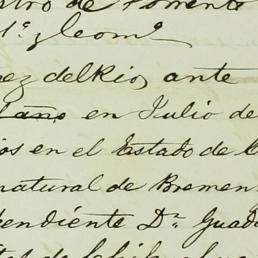 tro de Torrente
1º y leomº
ez del Rio, ante
año en Julio de
os en el Estado de C
natural de Bremen
pendiente Dn Guad